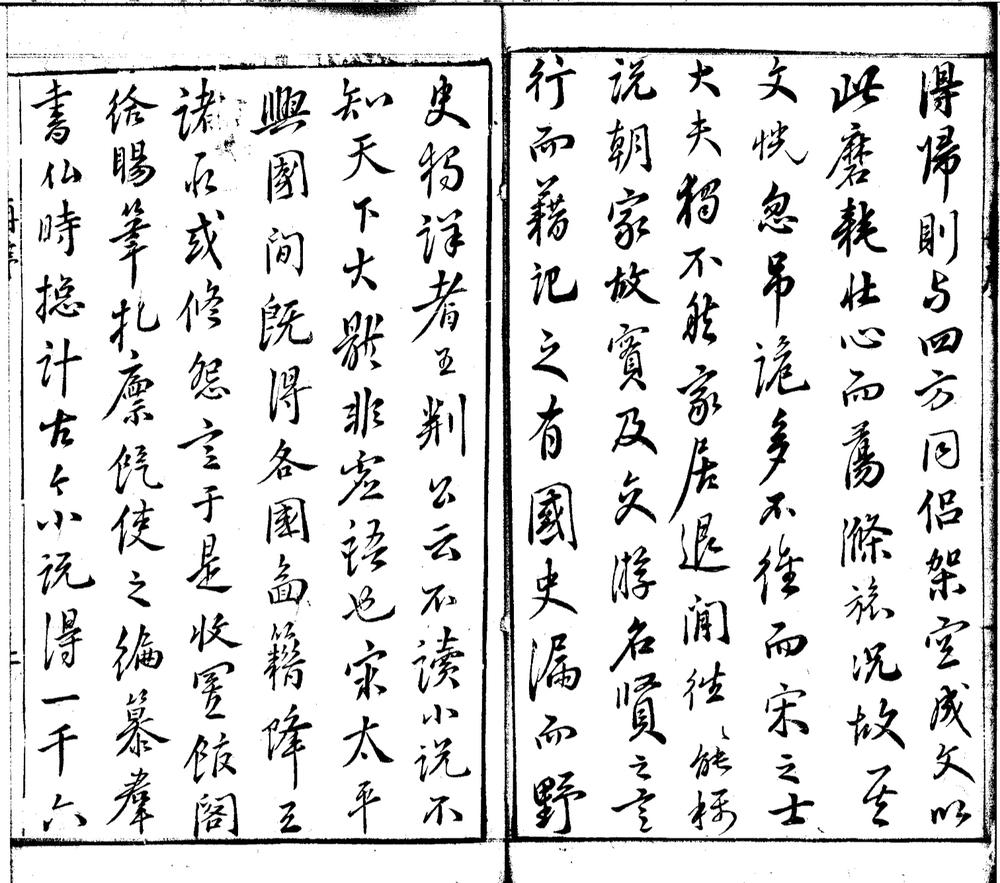 得歸則与四方同侣架空成文以
此磨耗壮心而蕩滌旅况故其
文恍忽吊詭多不経而宋之士
大夫獨不然家居退闲往〻能称
说朝家故實及交游名賢之言
行而藉记之有國史漏而野
史獨詳者王荆公云不讀小说不
知天下大體非虚語也宋太平
興國間既得各國圖籍降王
諸臣或修怨言于是收置館閣
给賜筆札廪餼使之編纂羣
書仏時総计古今小说得一千六